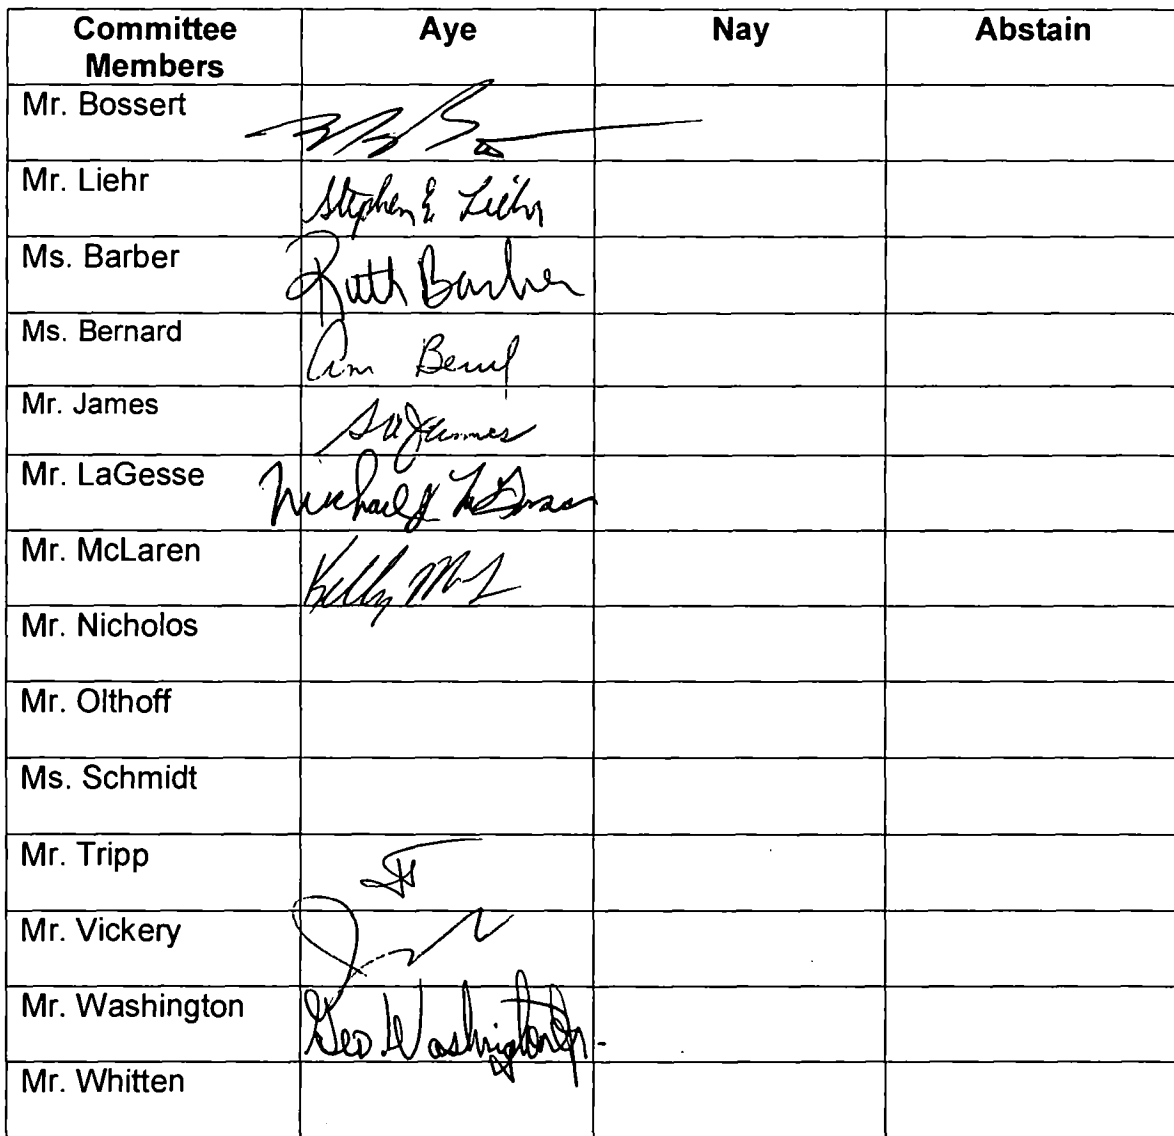 Committee Members Aye Nay Abstain
Mr. Bossert
Mr. Liehr Stephen E Liehr
Ms. Barber Ruth Barber
Ms. Bernard
Mr. James
Mr. LaGesse Michael J LaGesse
Mr. McLaren Kelly McL
Mr. Nicholos
Mr. Olthoff
Ms. Schmidt
Mr. Tripp
Mr. Vickery
Mr. Washington Geo Washington Jr.
Mr. Whitten